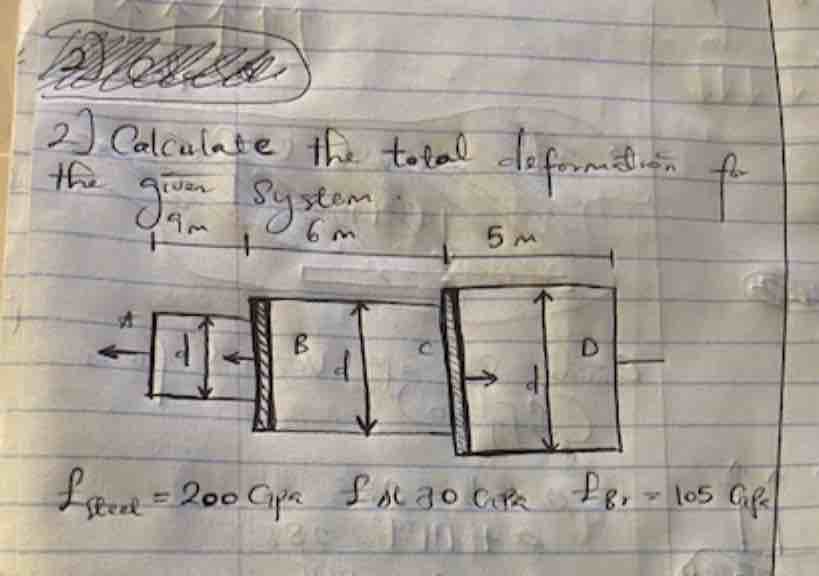 2) Calculate the total deformation for
the given system.
9m 6 m 5 m
A d B d C d D
E steel = 200 Gpa E Al 70 GPa E Br = 105 Gpa